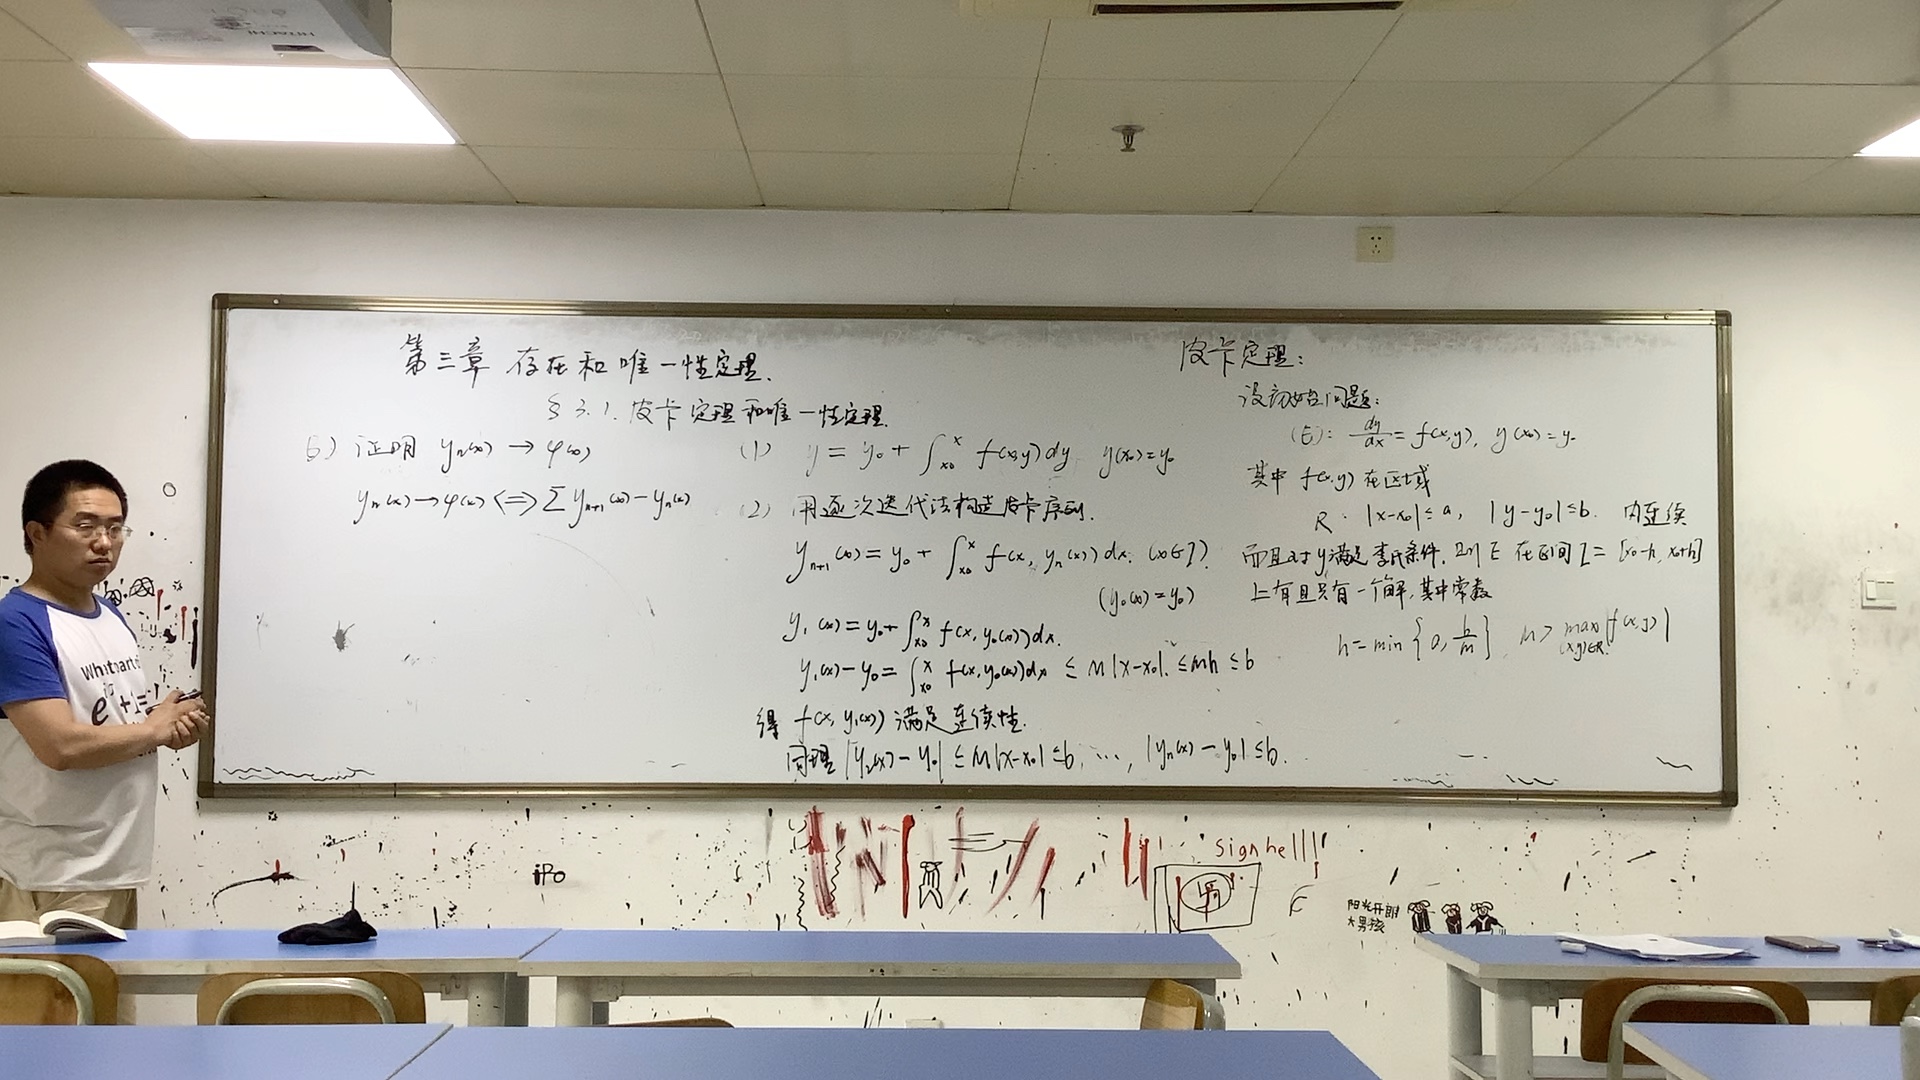 第三章 存在和唯一性定理.
§3.1. 皮卡定理和唯一性定理.
3) 证明 yₙ(x) → φ(x)
yₙ(x) → φ(x) <=> Σ yₙ₊₁(x) − yₙ(x)
(1) y = y₀ + ∫ₓ₀ˣ f(x,y)dy y(x₀)=y₀
(2) 用逐次迭代法构造皮卡序列.
yₙ₊₁(x) = y₀ + ∫ₓ₀ˣ f(x, yₙ(x)) dx. (x∈I).
(y₀(x) = y₀)
y₁(x) = y₀ + ∫ₓ₀ˣ f(x, y₀(x))dx.
y₁(x) − y₀ = ∫ₓ₀ˣ f(x, y₀(x))dx ≤ M|x−x₀|. ≤ Mh ≤ b
得 f(x, y₁(x)) 满足连续性.
同理 |y₂(x) − y₀| ≤ M|x−x₀| ≤ b, ⋯, |yₙ(x) − y₀| ≤ b.
皮卡定理:
设初始问题:
(E): dy/dx = f(x,y), y(x₀) = y₀
其中 f(x,y) 在区域
R: |x−x₀| ≤ a, |y−y₀| ≤ b. 内连续
而且对y满足李氏条件. 则 E 在区间 I = [x₀−h, x₀+h]
上有且只有一个解, 其中常数
h = min {a, b/m} M > max (x,y)∈R |f(x,y)|
HITACHI
What part
e +1=
iPo
signhell!!
阳光开朗
大男孩